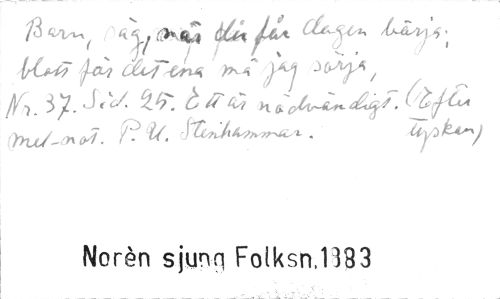 Barn, säg, när du får dagen börja,
blott för det ena må jag sörja,
Nr. 37. Sid. 25. Ett är nödvändigt. (Efter
mel-not. P. U. Stenhammar. tyskan)
Norèn sjung Folksn.1883